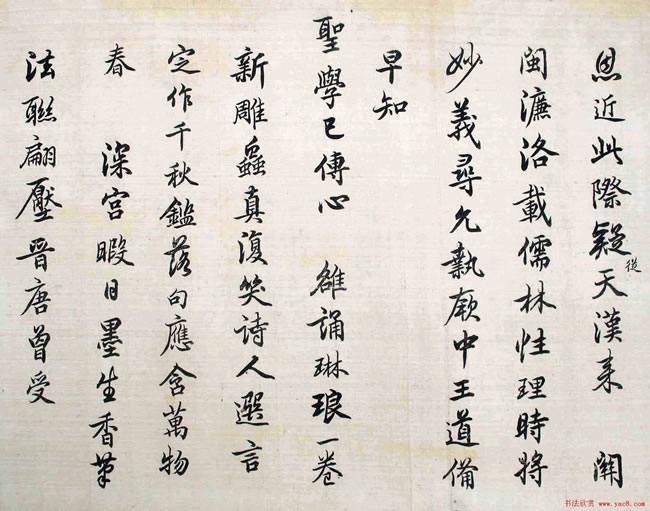 恩近此際疑從天漢來 關
閩濂洛載儒林性理時將
妙義尋允執厥中王道備
早知
聖學已傳心 雒誦琳琅一卷
新雕蟲真復笑詩人選言
定作千秋鑑落句應含萬物
春 深宮暇日墨生香筆
法聯翩壓晉唐曾受
书法欣赏 www.yac8.com